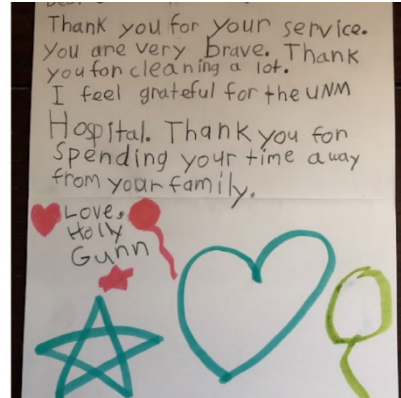 Thank you for your service.
You are very brave. Thank
you for cleaning a lot.
I feel grateful for the UNM
Hospital. Thank you for
spending your time away
from your family.
Love,
Holly
Gunn